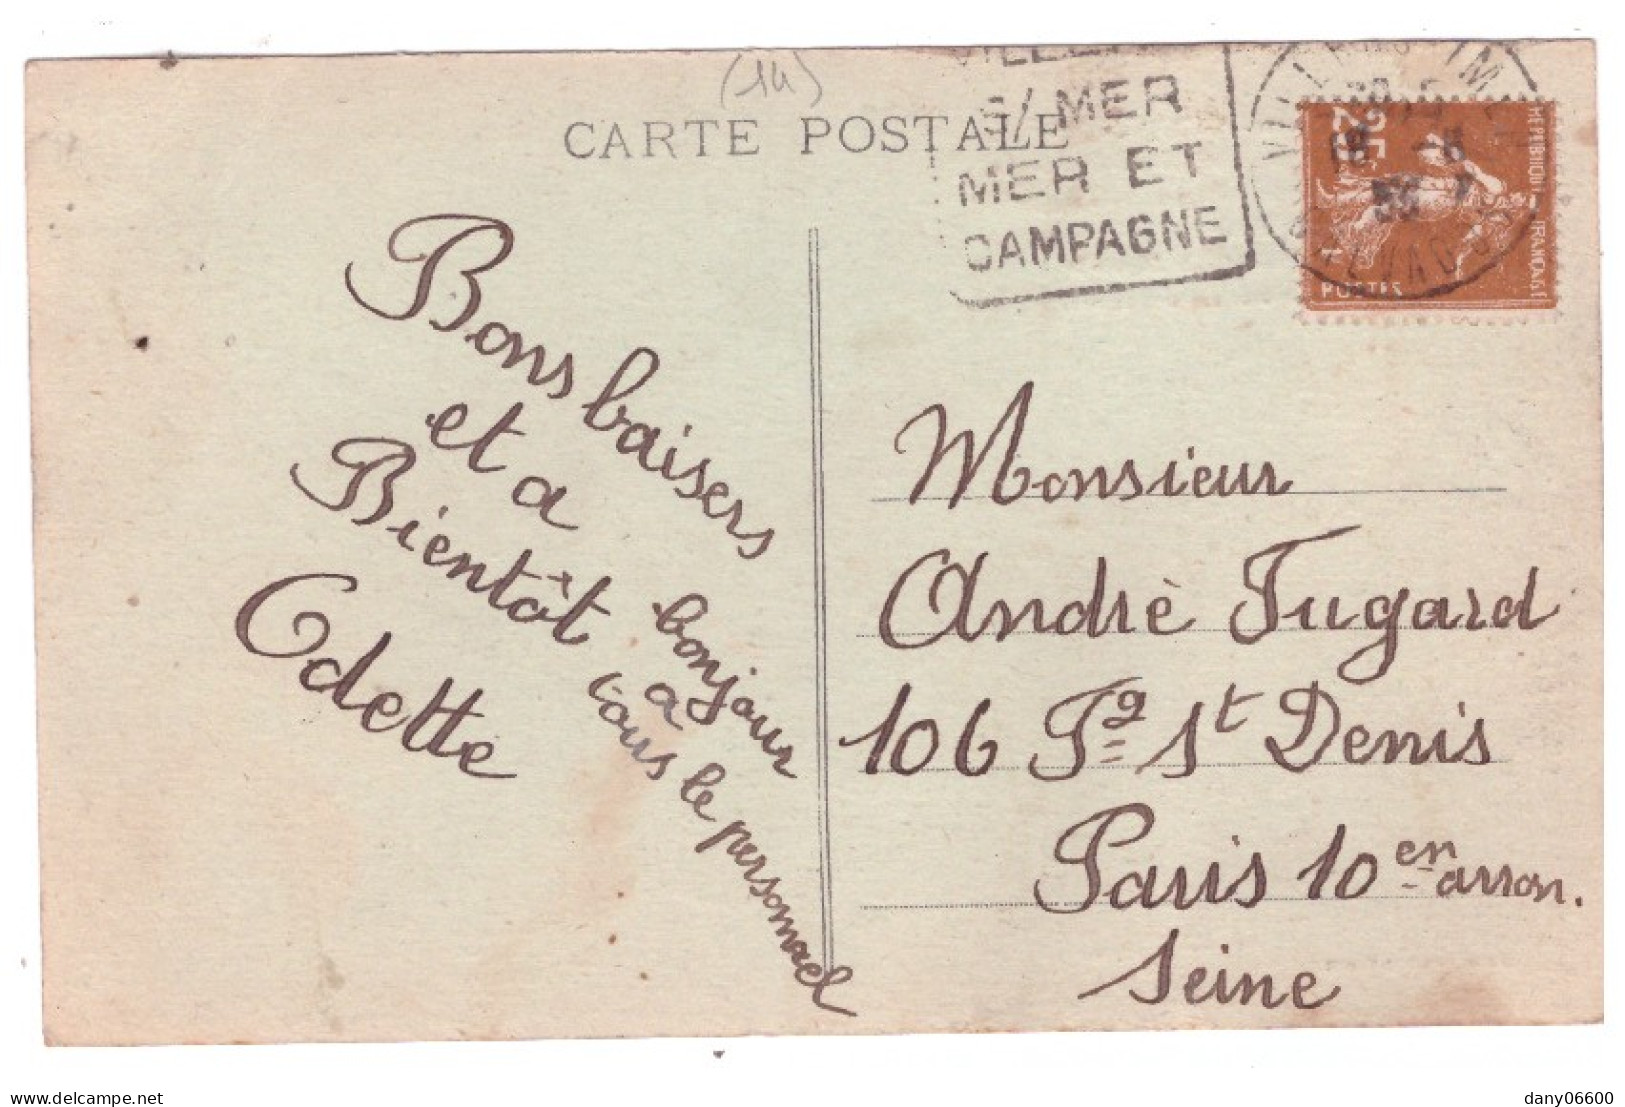 (14)
CARTE POSTALE
S/ MER
MER ET
CAMPAGNE
25
POSTES
Bons baisers
et a
Bientôt
Odette
bonjour
a
tous le personnael
Monsieur
Andrè Fugard
106 Fg St Denis
Paris 10en arron.
Seine
www.delcampe.net
dany06600